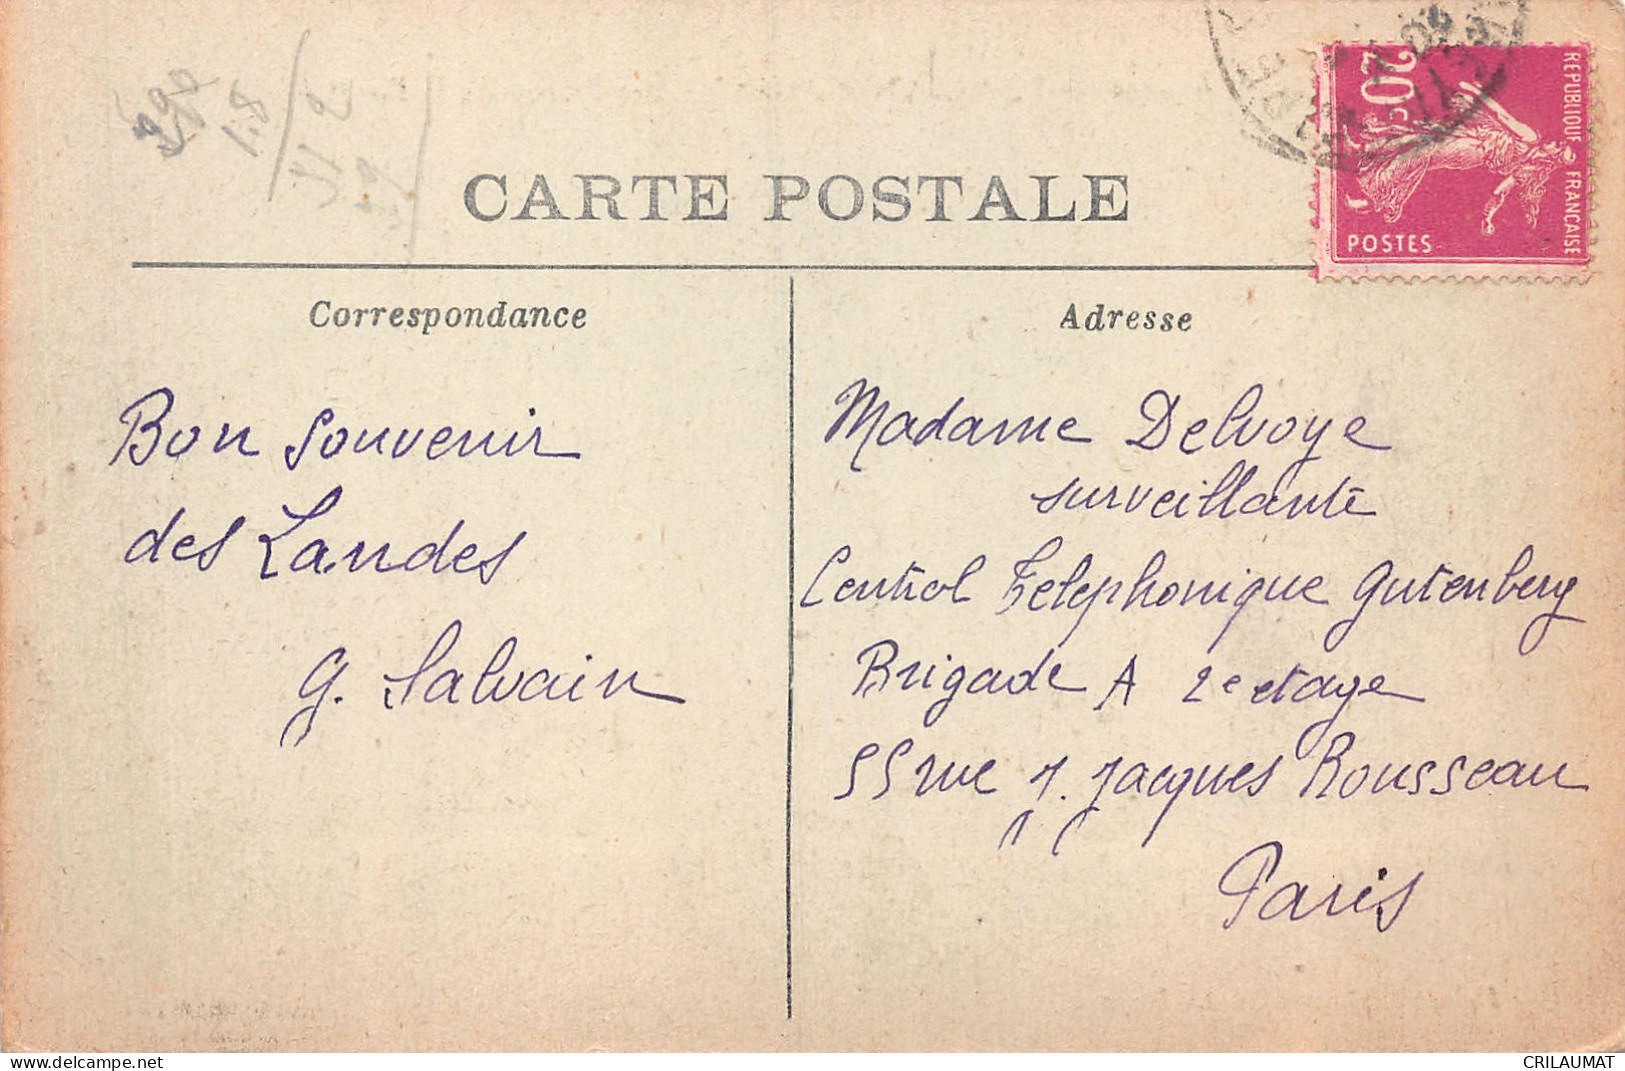 CARTE POSTALE
REPUBLIQUE FRANÇAISE
20c
POSTES
Correspondance
Bon souvenir
des Landes
G. Salvain
Adresse
Madame Delvoye
surveillante
Central Telephonique Gutenberg
Brigade A 2e etage
55 rue J. Jacques Rousseau
Paris
delcampe.net
CRILAUMAT